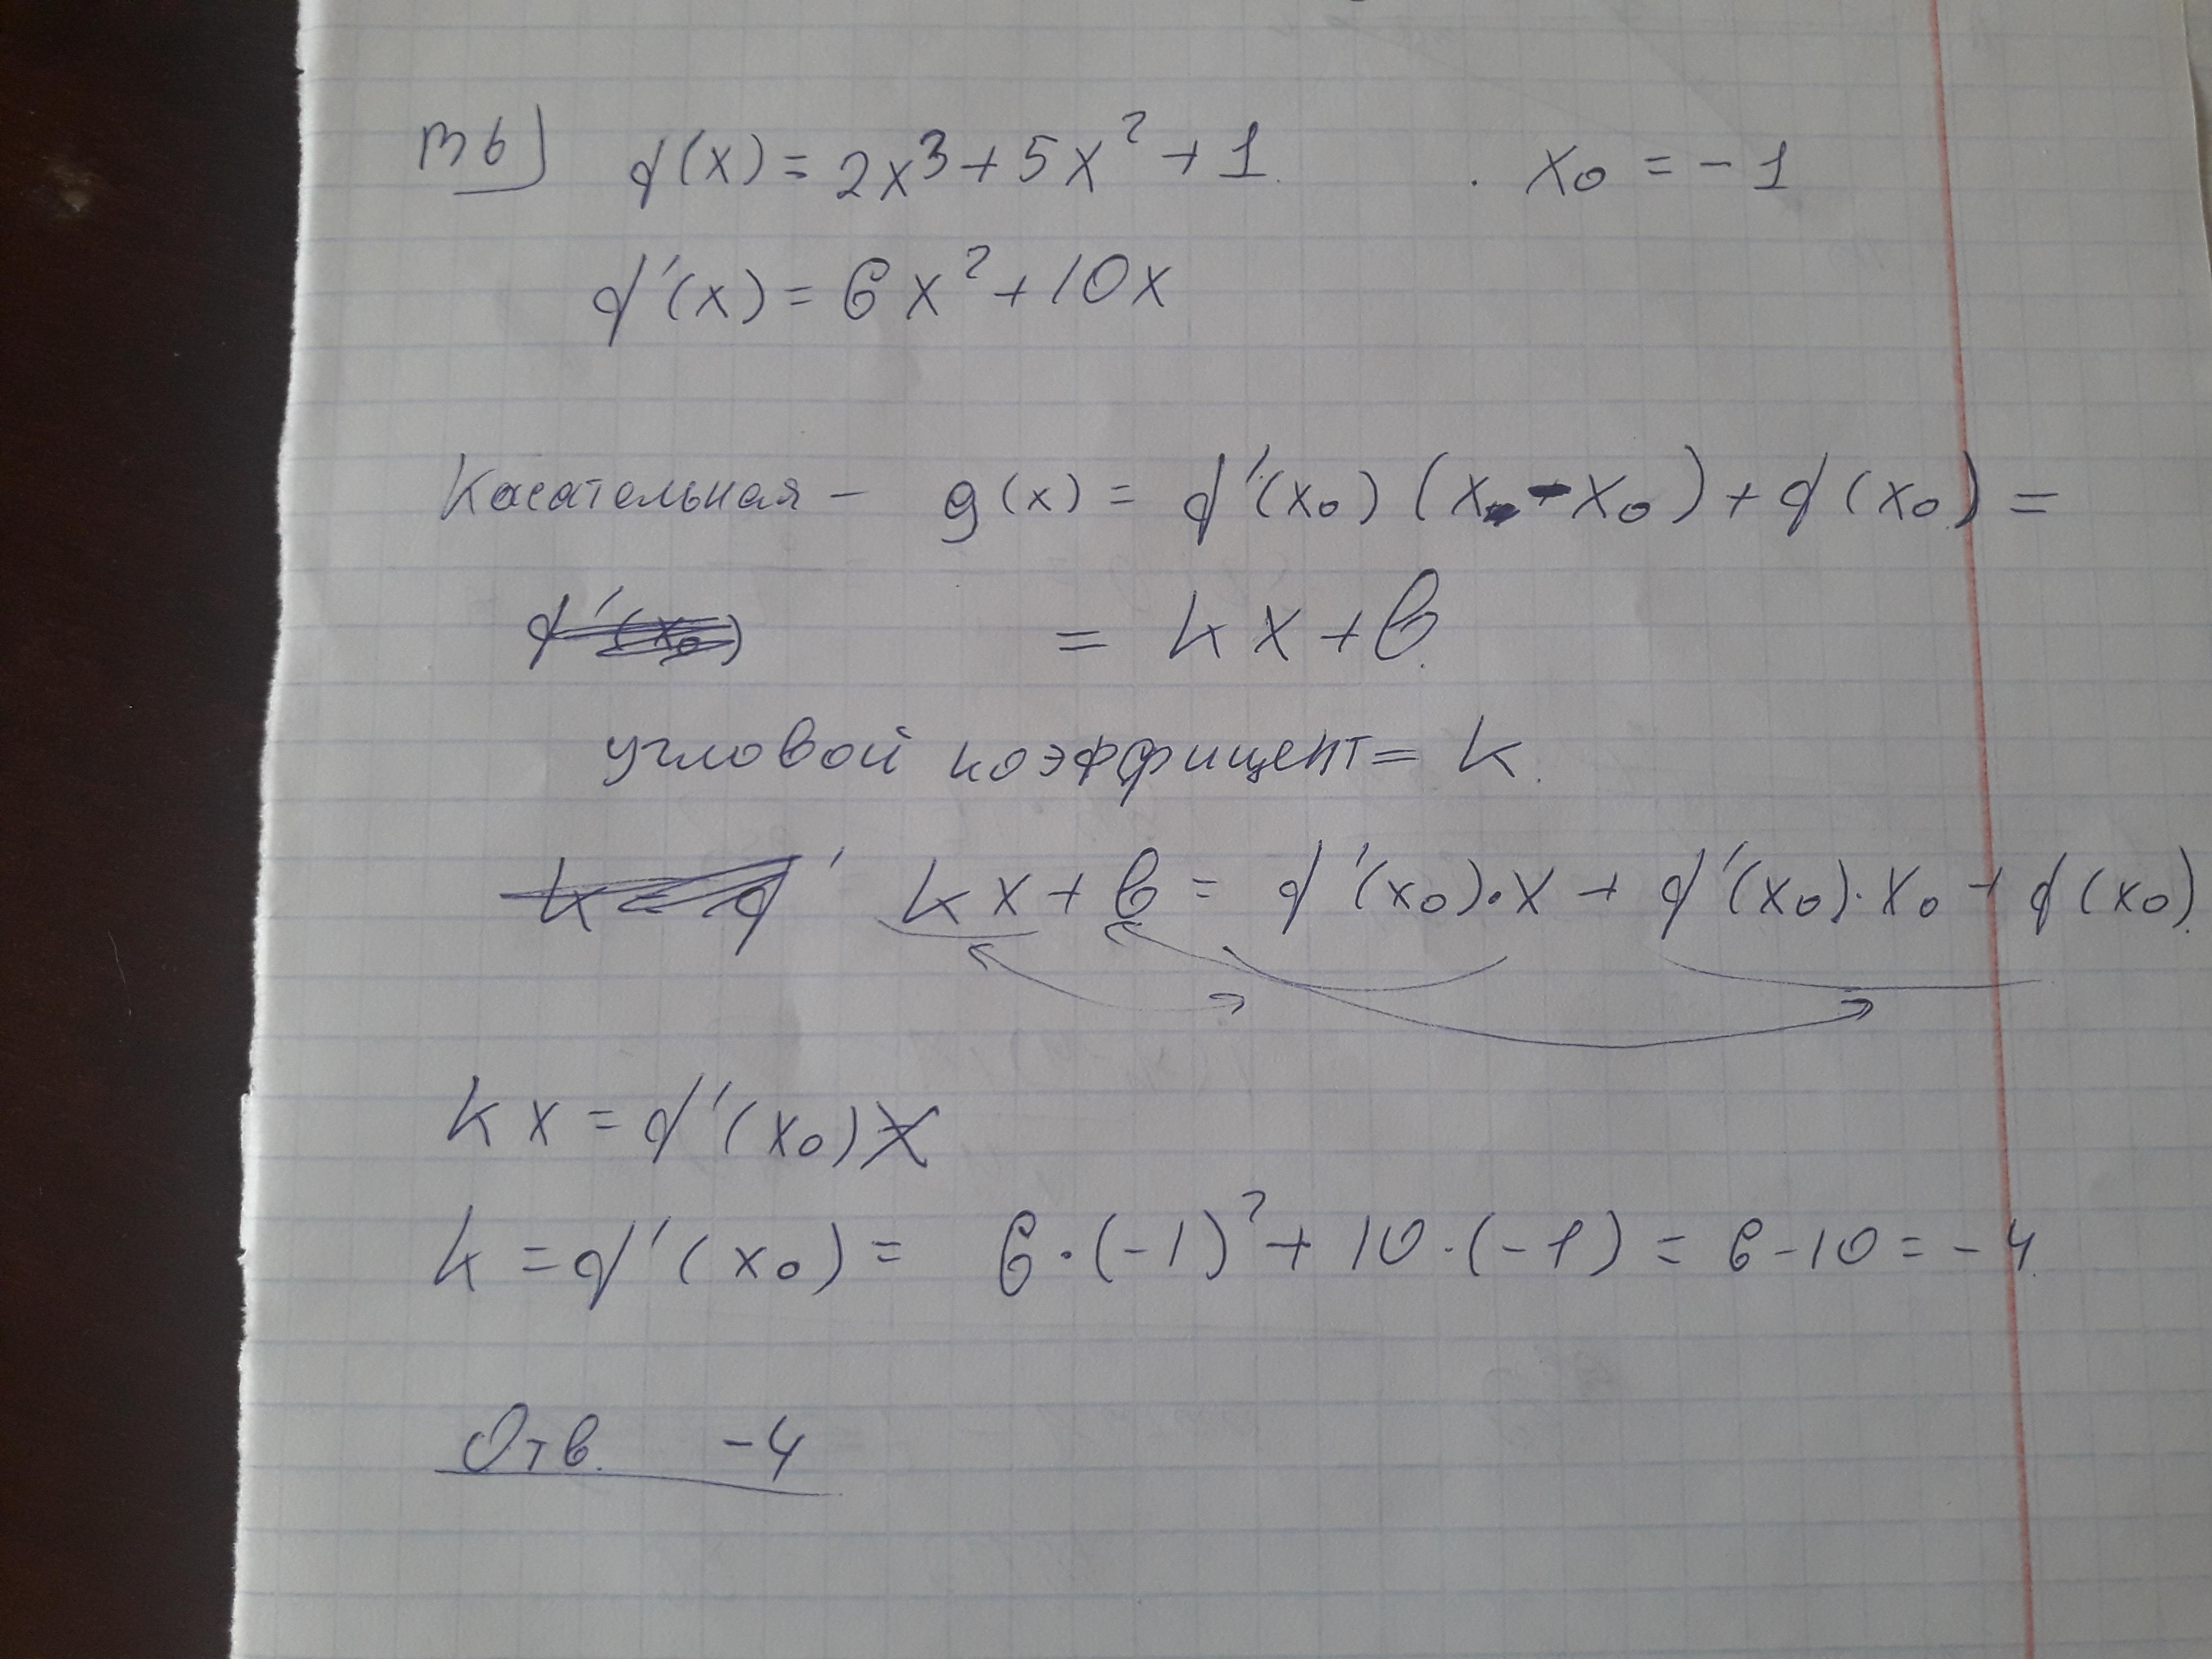 m б) f(x) = 2x³ + 5x² + 1. x₀ = -1
f'(x) = 6x² + 10x
Касательная - g(x) = f'(x₀) (x - x₀) + f(x₀) =
f'(x₀) = kx + b.
угловой коэффицент = k.
kx + b = f'(x₀)·x + f'(x₀)·x₀ + f(x₀).
kx = f'(x₀)x
k = f'(x₀) = 6·(-1)² + 10·(-1) = 6-10 = -4.
Отв. -4